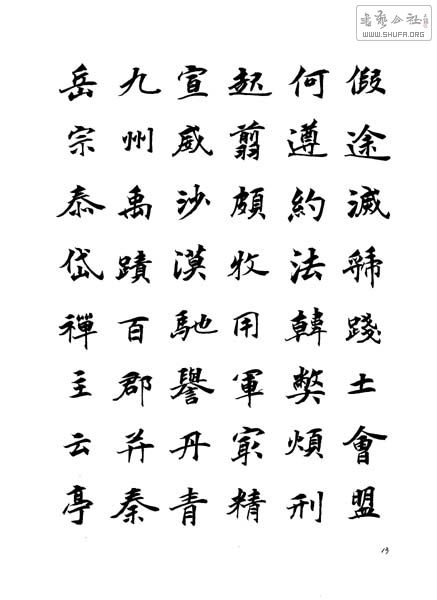 書藝公社
www.SHUFA.ORG
假途滅虢踐土會盟
何遵約法韓弊煩刑
起翦頗牧用軍最精
宣威沙漠馳譽丹青
九州禹蹟百郡并秦
岳宗泰岱禪主云亭
13